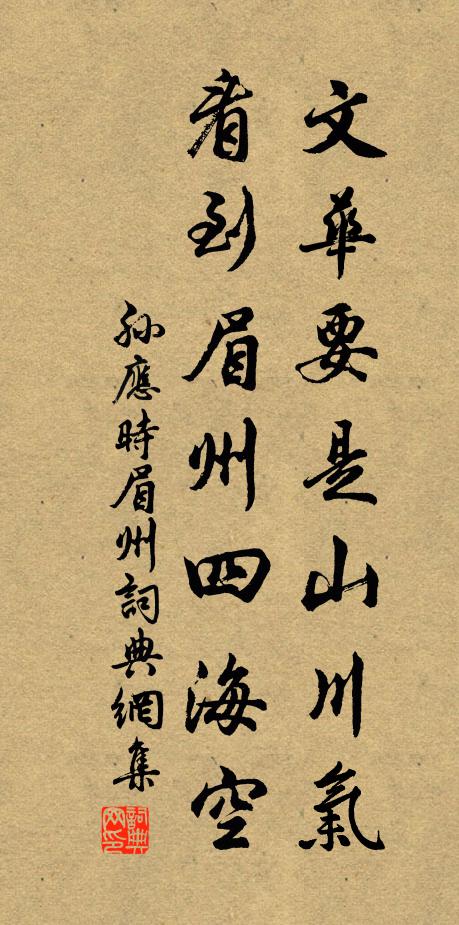 文華要是山川氣
看到眉州四海空
孫應時眉州詞典網集
詞典网印